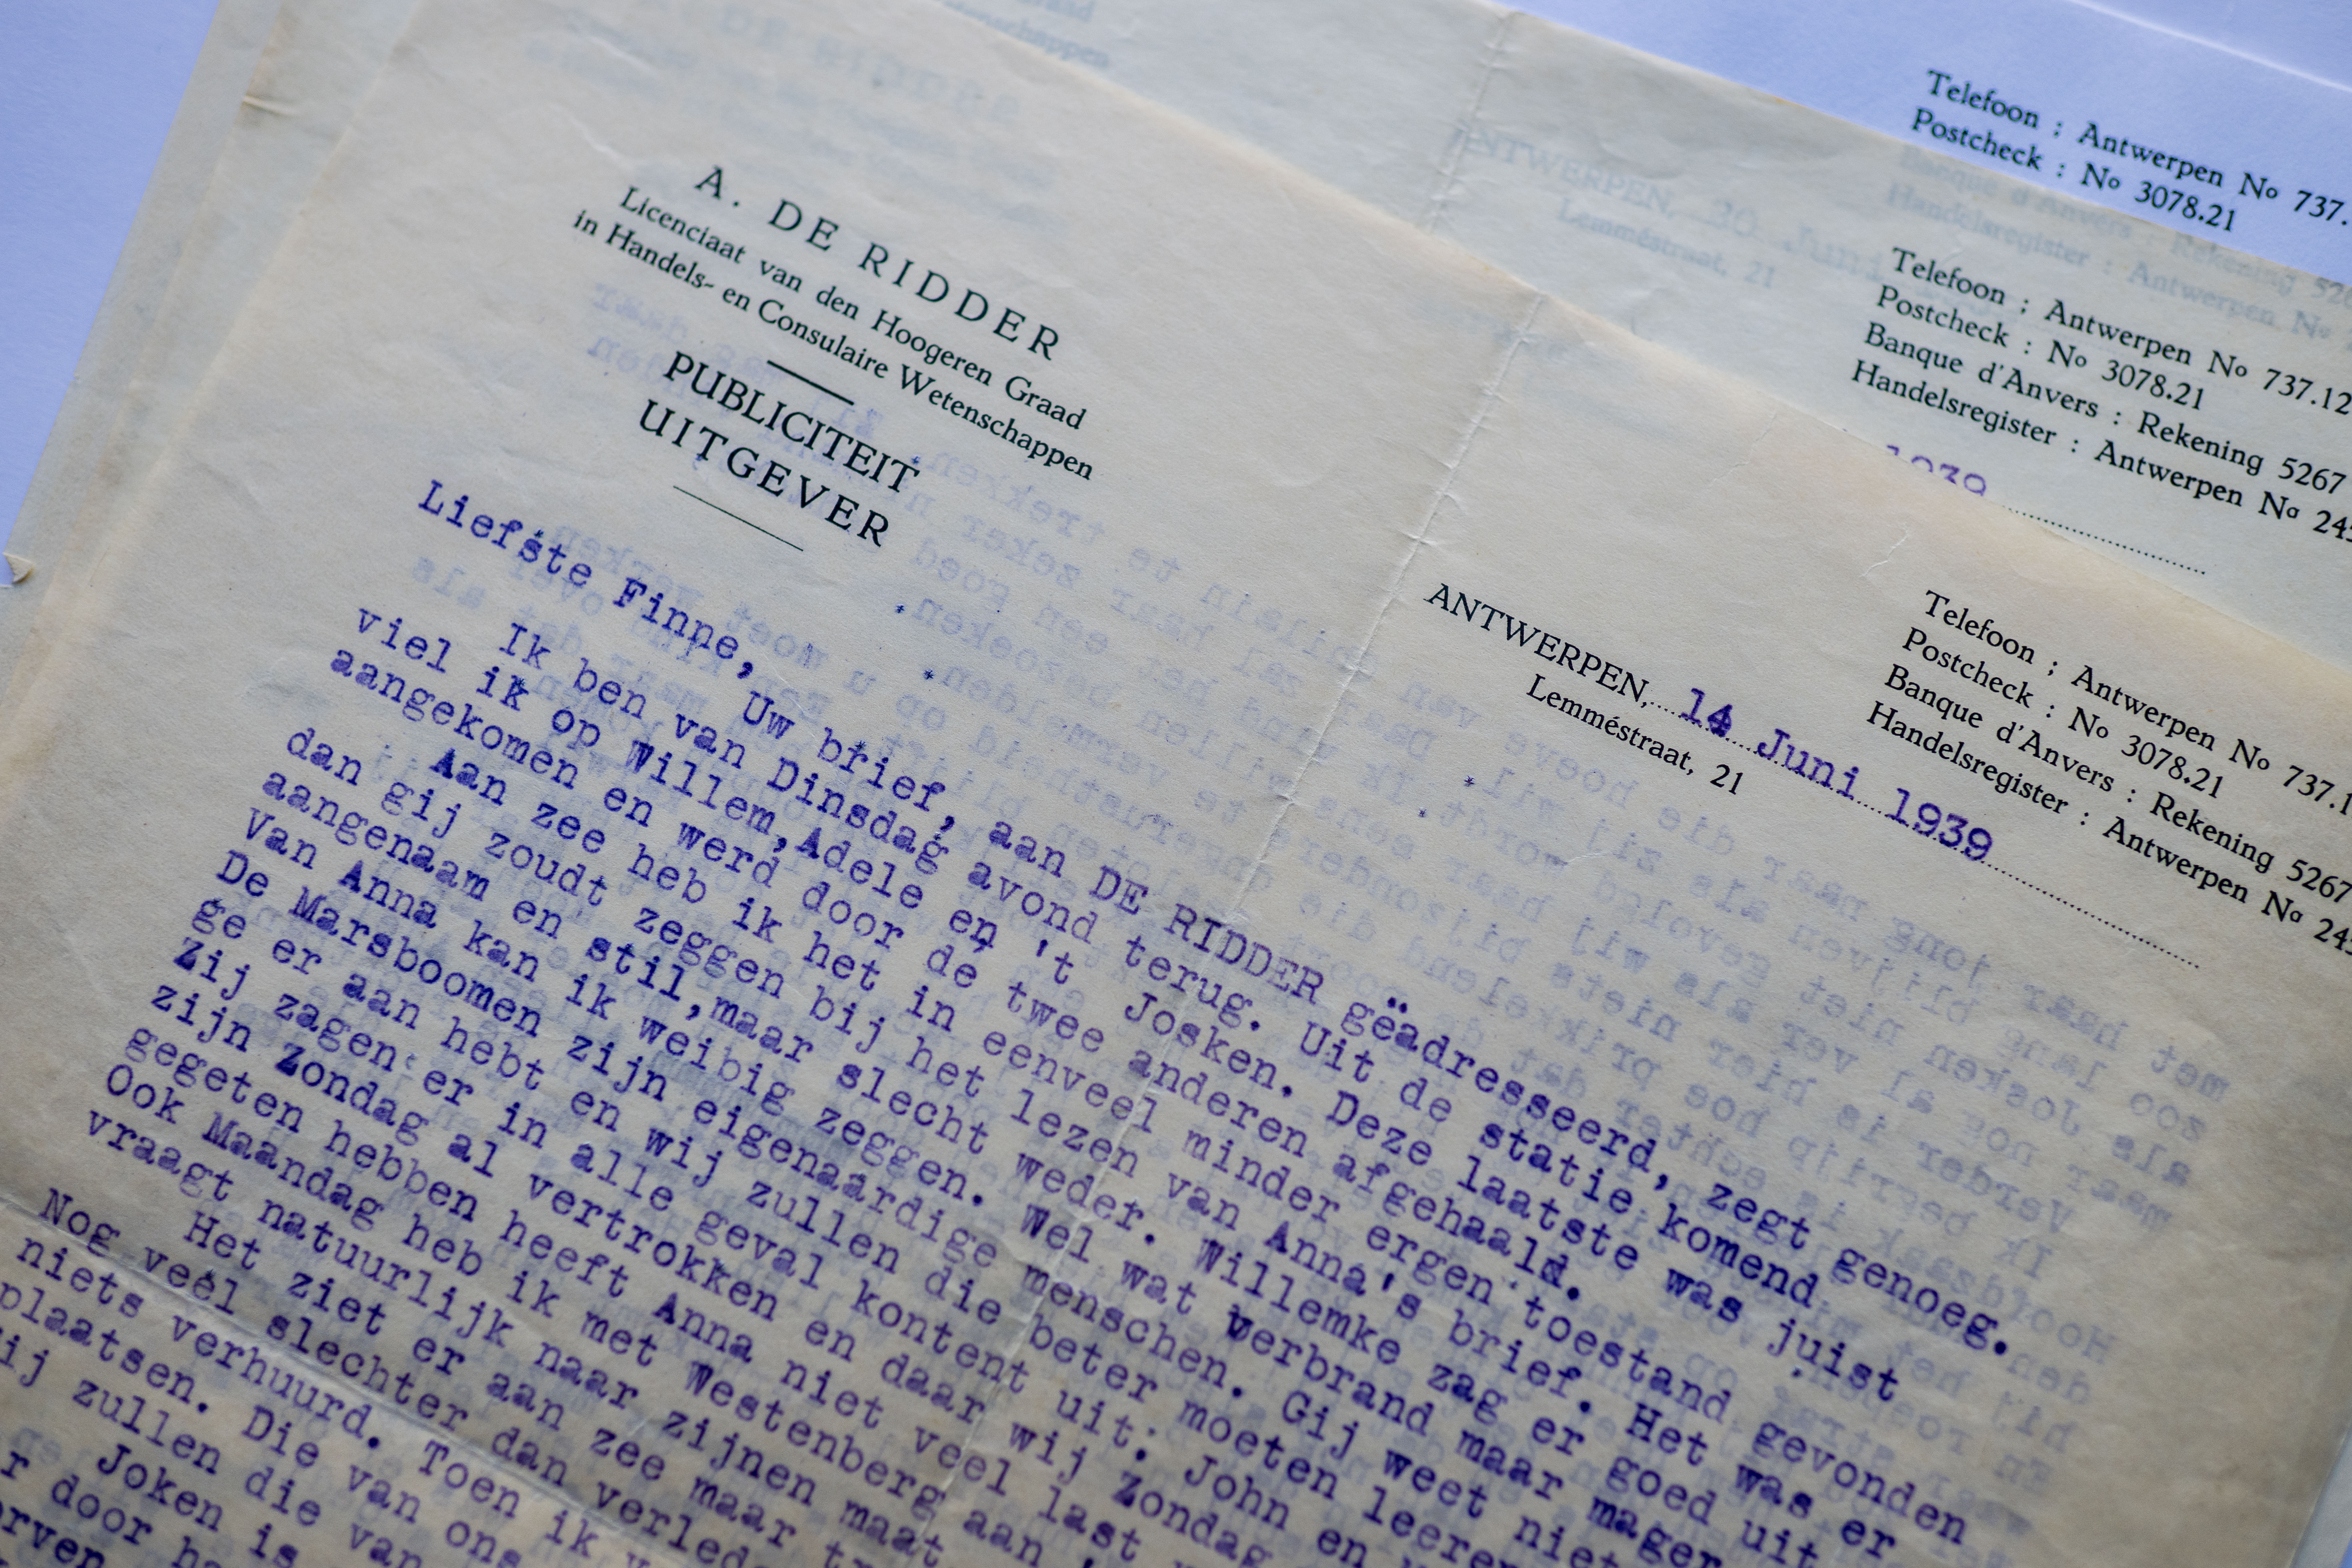 Telefoon : Antwerpen No 737.
Postcheck : No 3078.21
Telefoon : Antwerpen No 737.12
Postcheck : No 3078.21
Banque d'Anvers : Rekening 5267
Handelsregister : Antwerpen No 24
1939
A. DE RIDDER
Licenciaat van den Hoogeren Graad
in Handels- en Consulaire Wetenschappen
PUBLICITEIT
UITGEVER
Telefoon : Antwerpen No 737.1
Postcheck : No 3078.21
Banque d'Anvers : Rekening 5267
Handelsregister : Antwerpen No 24
ANTWERPEN, 14 Juni 1939
Lemméstraat, 21
Liefste Finne,
Uw brief, aan DE RIDDER geädresseerd, zegt genoeg.
Ik ben van Dinsdag avond terug. Uit de statie komend
viel ik op Willem,Adele en 't Josken. Deze laatste was juist
aangekomen en werd door de twee anderen afgehaald.
Aan zee heb ik het in eenveel minder ergen toestand gevonden
dan gij zoudt zeggen bij het lezen van Anna's brief. Het was er
aangenaam en stil,maar slecht weder. Willemke zag er goed uit
Van Anna kan ik weibig zeggen. Wel wat verbrand maar mager
De Marsboomen zijn eigenaardige menschen. Gij weet niet
ge er aan hebt en wij zullen die beter moeten leeren
Zij zagen er in alle geval kontent uit; John en
zijn Zondag al vertrokken en daar wij Zondag
gegeten hebben heeft Anna niet veel last
Ook Maandag heb ik met Westenberg aan
vraagt natuurlijk naar zijnen maat
Het ziet er aan zee maar
Nog veel slechter dan verled
niets verhuurd. Toen ik
plaatsen. Die van ons
ij zullen die van
Joken is
r door ha
rven